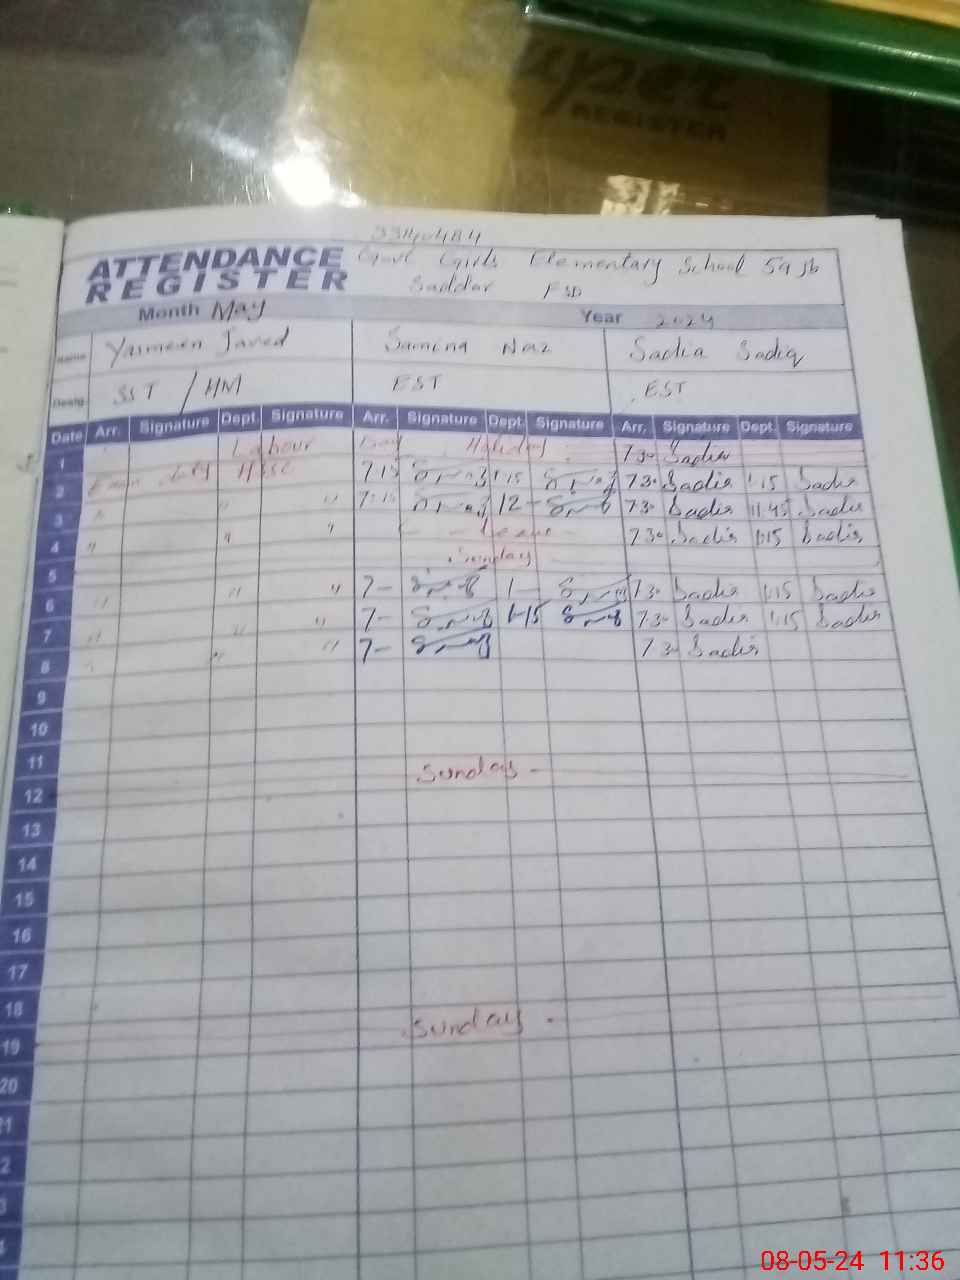 Super
REGISTER
33140484
ATTENDANCE
REGISTER
Govt Girls Elementary School 59 Jb
Saddar FSD
Month May Year 2024
Name Yasmeen Javed Samina Naz Sadia Sadiq
Desig. SST / HM EST EST
Date Arr. Signature Dept Signature Arr. Signature Dept. Signature Arr. Signature Dept. Signature
1 Labour Day Holiday 7 30 Sadia
2 Exam duty HSSC 7 15 1:15 7 30 Sadia 1:15 Sadia
3 " " " 7:15 12 - 7 30 Sadia 11.45 Sadia
4 " " " - Leave - 7 30 Sadia 1:15 Sadia
5 Sunday
6 " " " 7 - 1 - 7 30 Sadia 1:15 Sadia
7 " " " 7 - 1-15 7 30 Sadia 1:15 Sadia
8 " " " 7 - 7 30 Sadia
9
10
11
12 Sunday -
13
14
15
16
17
18
19 Sunday -
20
08-05-24 11:36